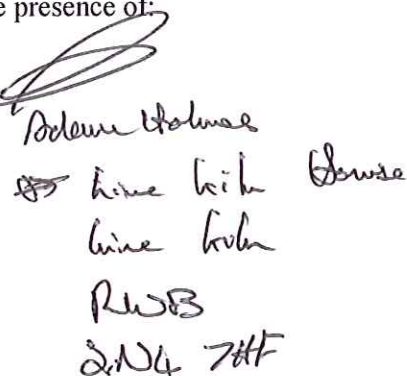 e presence of:
Adam Holmes
Lime Kiln House
Lime Kiln
RWB
SN4 7HF